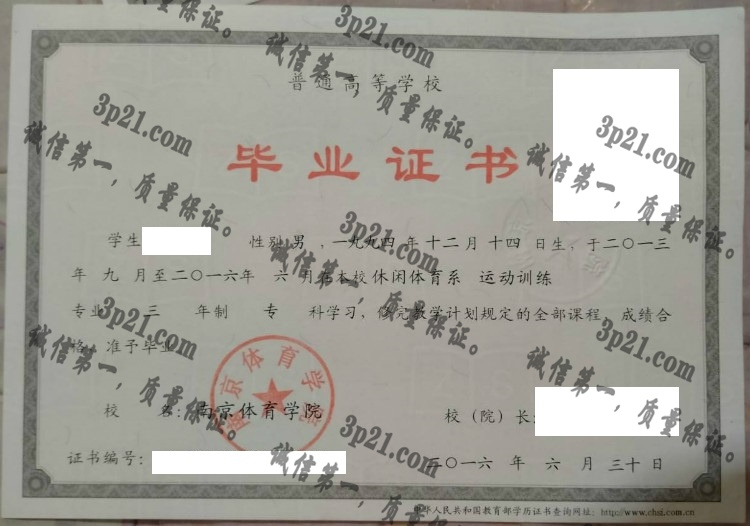 普通高等学校
毕业证书
学生 性别 男 ，一九九四 年 十二 月 十四 日生，于二〇一三
年 九 月至二〇一六年 六 月在本校 休闲体育系 运动训练
专业 三 年制 专 科学习，修完教学计划规定的全部课程，成绩合
格，准予毕业。
南京体育学院
校 名：南京体育学院
校（院）长：
证书编号：
二〇一六 年 六 月 三十 日
中华人民共和国教育部学历证书查询网址：http://www.chsi.com.cn
3p21.com
诚信第一，质量保证。
3p21.com
诚信第一，质量保证。
3p21.com
诚信第一，质量保证。
3p21.com
诚信第一，质量保证。
3p21.com
诚信第一，质量保证。
3p21.com
诚信第一，质量保证。
3p21.com
诚信第一，质量保证。
3p21.com
诚信第一
质量保证。